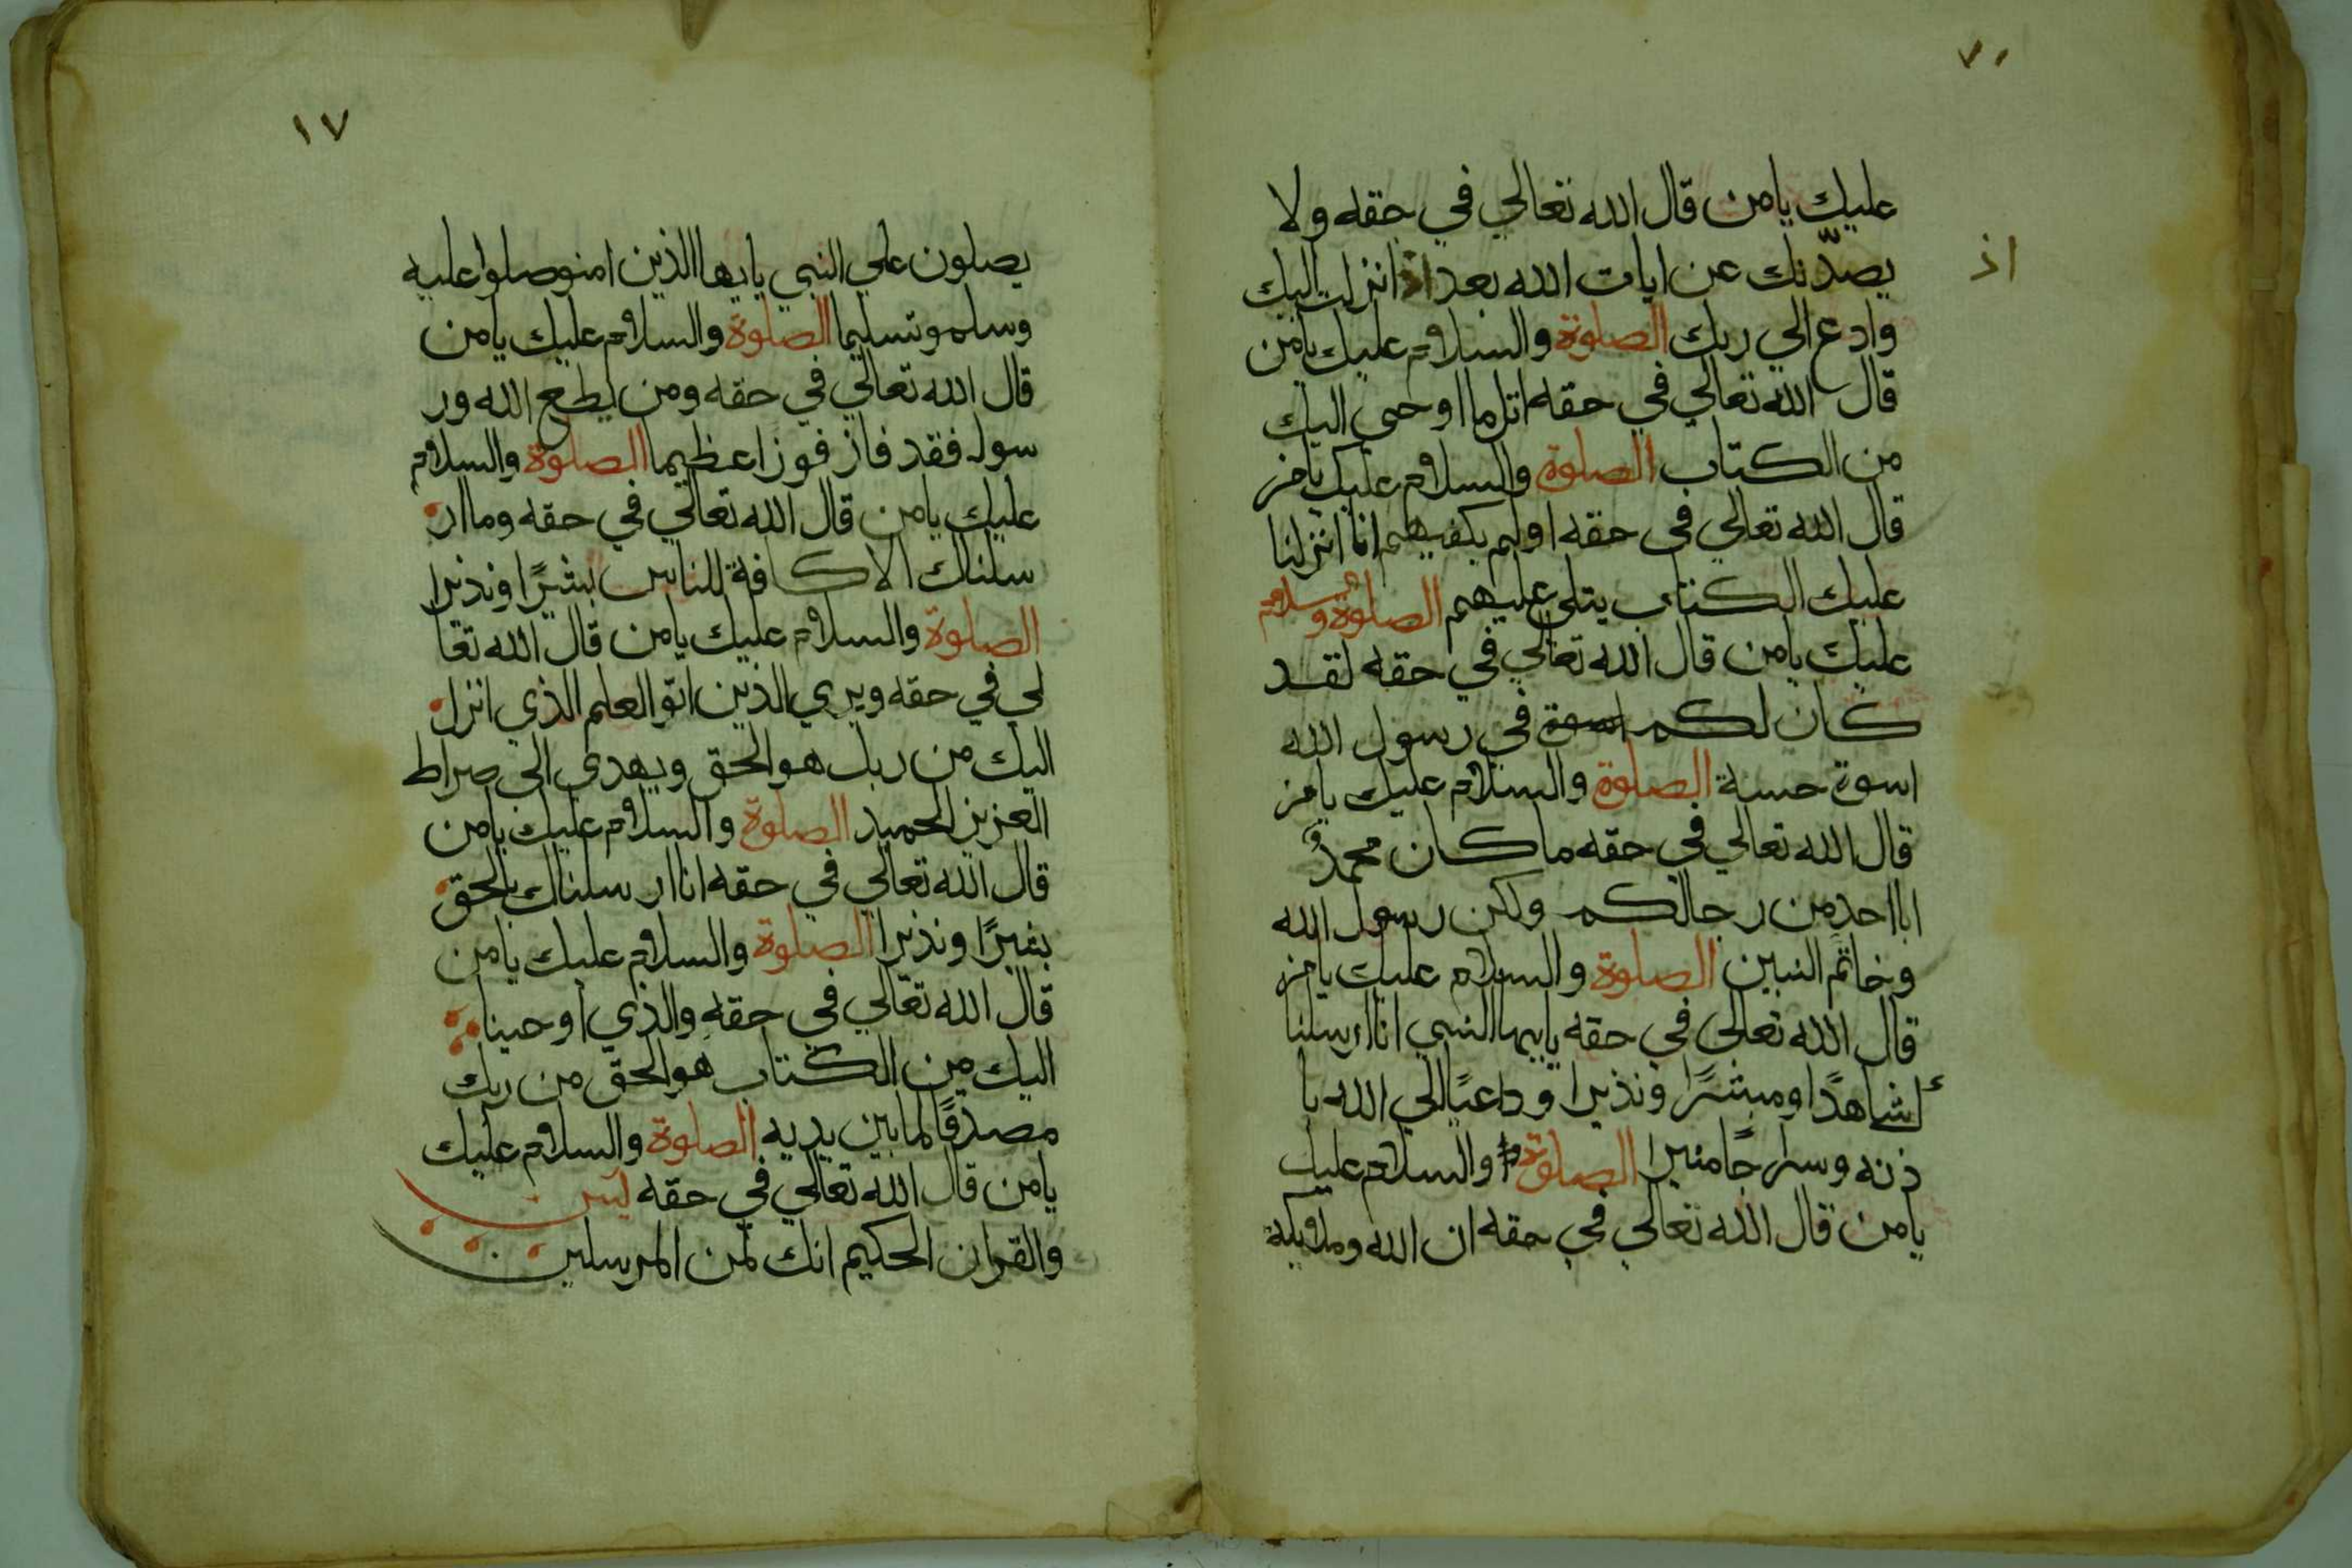 ٧١
عليك يامن قال الله تعالي في حقه ولا
اذ
يصدّنك عن ايات الله بعد اذ انزلت اليك
وادع الي ربك الصلوة والسلام عليك يامن
قال الله تعالي في حقه اتل ما اوحي اليك
من الكتاب الصلوة والسلام عليك يامن
قال الله تعالي في حقه اولم يكفيهم انا انزلنا
عليك الكتاب يتلي عليهم الصلوة وسلام
عليك يامن قال الله تعالي في حقه لقد
كان لكم اسوة في رسول الله
اسوة حسنة الصلوة والسلام عليك يامن
قال الله تعالي في حقه ما كان محمدٌ
ابا احد من رجالكم ولكن رسول الله
وخاتم النبين الصلوة والسلام عليك يامن
قال الله تعالي في حقه يايها النبي انا ارسلنا
ك شاهدًا ومبشرًا ونذيرا وداعيًا الي الله با
ذنه وسراجًا منيرا الصلوة والسلام عليك
يامن قال الله تعالي في حقه ان الله وملائكة
١٧
يصلون علي النبي يايها الذين امنو صلوا عليه
وسلمو تسليما الصلوة والسلام عليك يامن
قال الله تعالي في حقه ومن يطع الله ور
سوله فقد فاز فوزًا عظيما الصلوة والسلام
عليك يامن قال الله تعالي في حقه وما ار
سلناك الا كافة للناس بشيرًا ونذيرا
الصلوة والسلام عليك يامن قال الله تعا
لي في حقه ويري الذين اتو العلم الذي انزل
اليك من ربك هو الحق ويهدي الي صراط
العزيز الحميد الصلوة والسلام عليك يامن
قال الله تعالي في حقه انا ارسلناك بالحق
بشيرًا ونذيرا الصلوة والسلام عليك يامن
قال الله تعالي في حقه والذي اوحينا
اليك من الكتاب هو الحق من ربك
مصدقًا لما بين يديه الصلوة والسلام عليك
يامن قال الله تعالي في حقه يس
والقران الحكيم انك لمن المرسلين